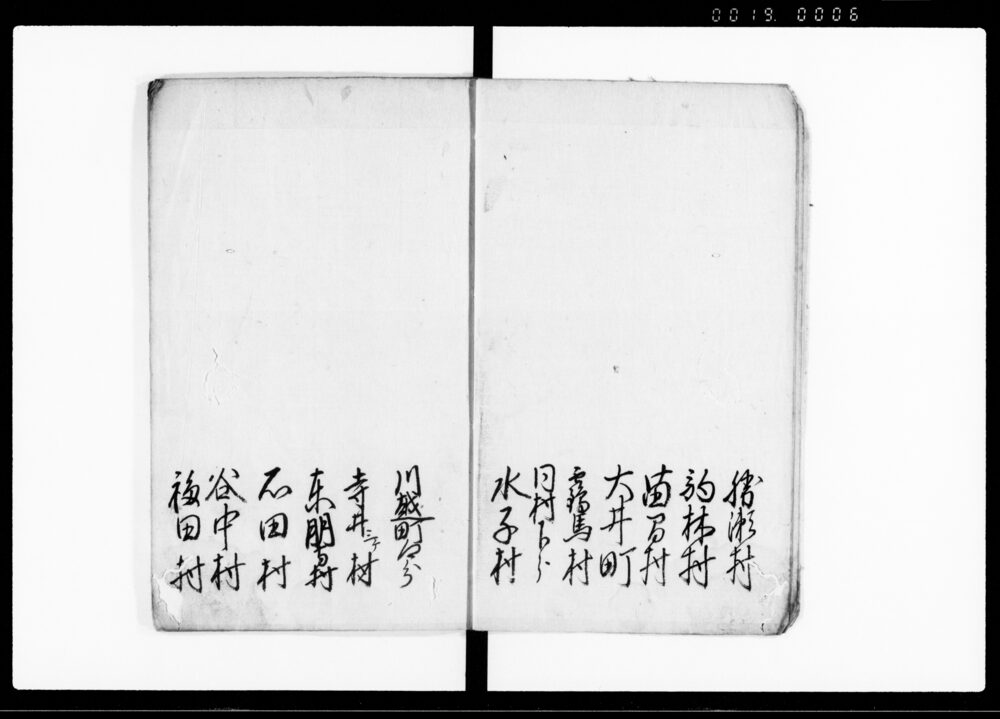 0019. 0006
勝瀬村
駒林村
苗間村
大井町
鶴馬村
同村下分
水子村
川越町分
寺井三ケ村
東明寺村
石田村
谷中村
福田村